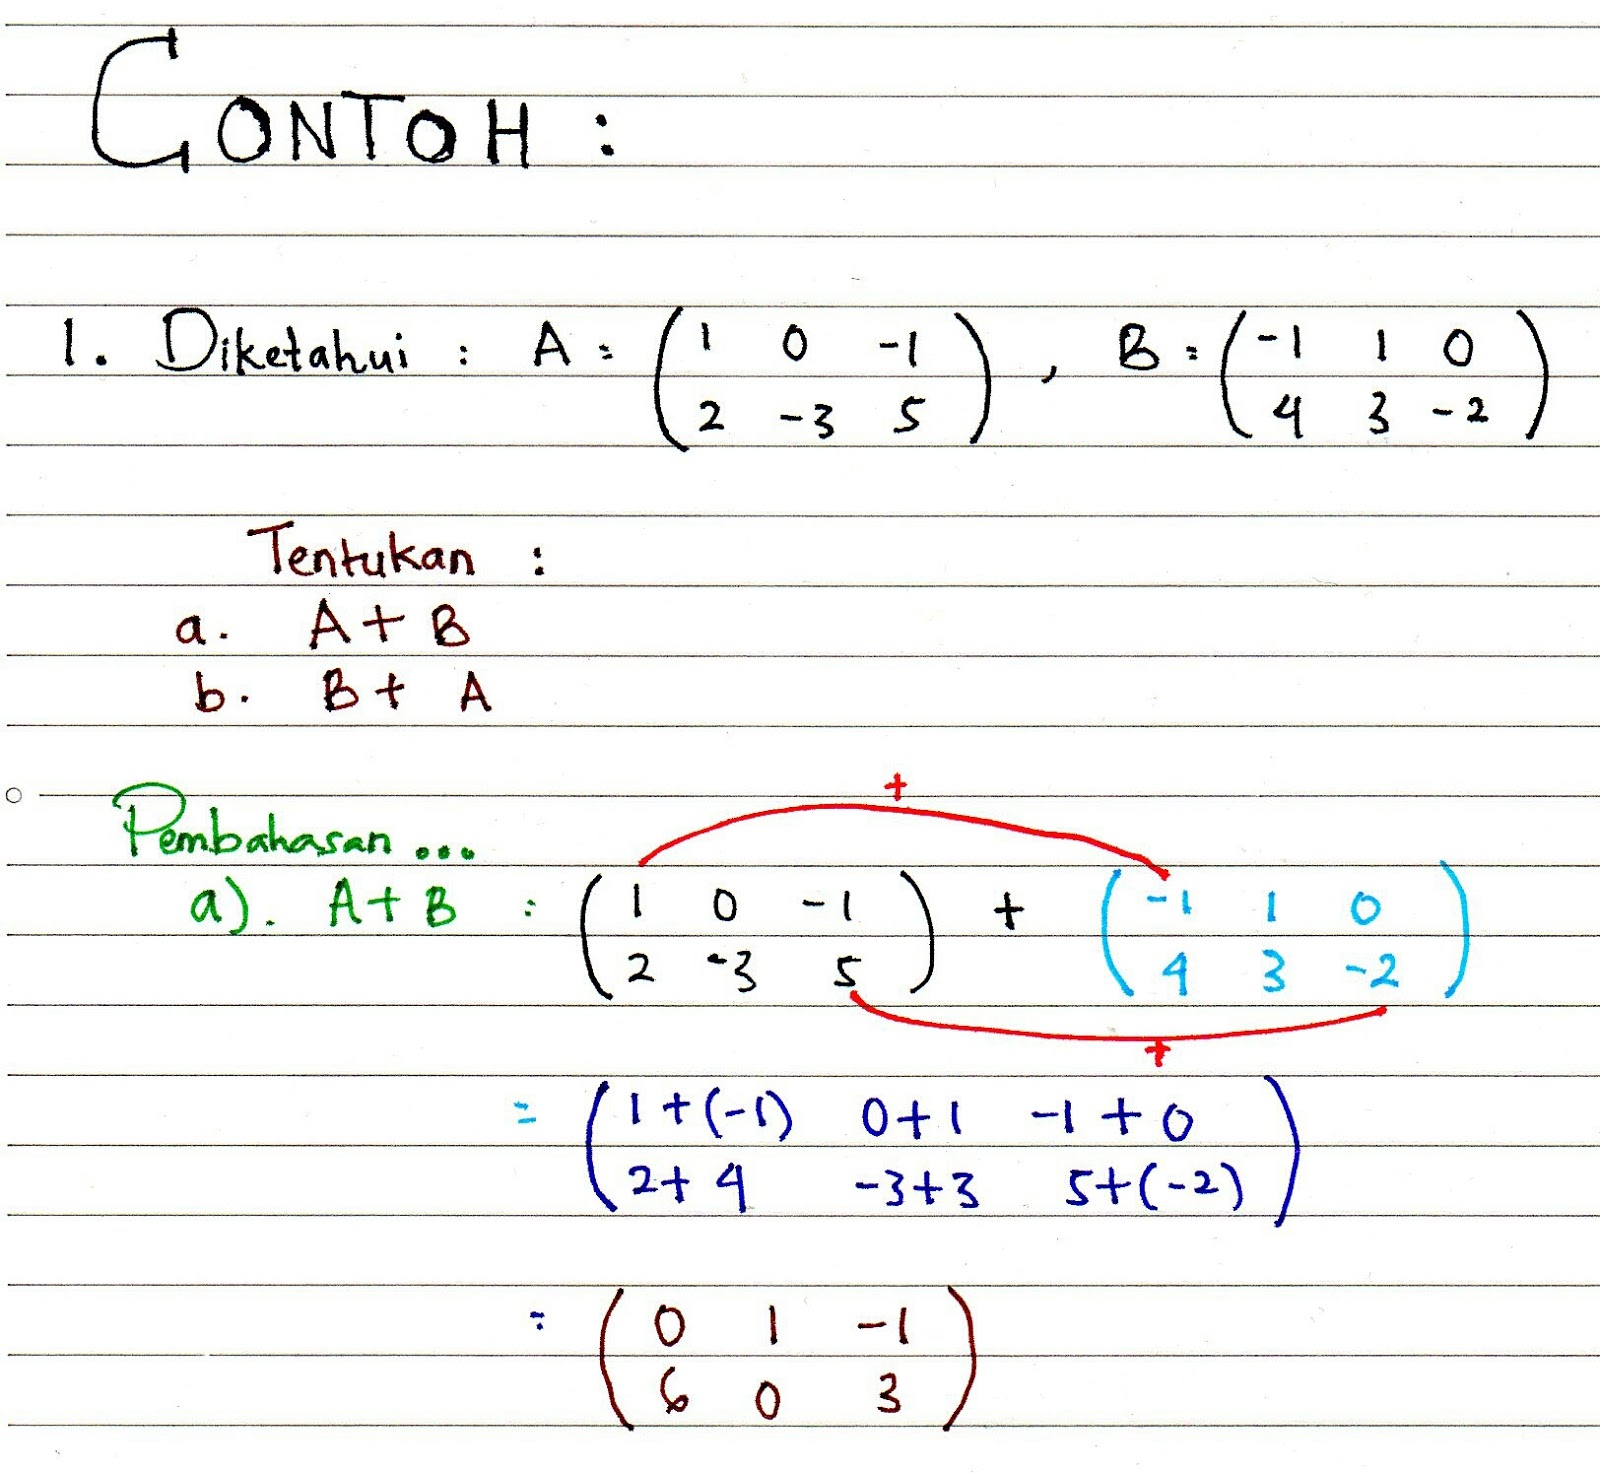 CONTOH :
1. Diketahui : A = ( 1 0 -1 ) , B = ( -1 1 0 )
( 2 -3 5 ) ( 4 3 -2 )
Tentukan :
a. A + B
b. B + A
+
Pembahasan ...
a). A + B = ( 1 0 -1 ) + ( -1 1 0 )
( 2 -3 5 ) ( 4 3 -2 )
+
= ( 1+(-1) 0+1 -1+0 )
( 2+4 -3+3 5+(-2) )
= ( 0 1 -1 )
( 6 0 3 )